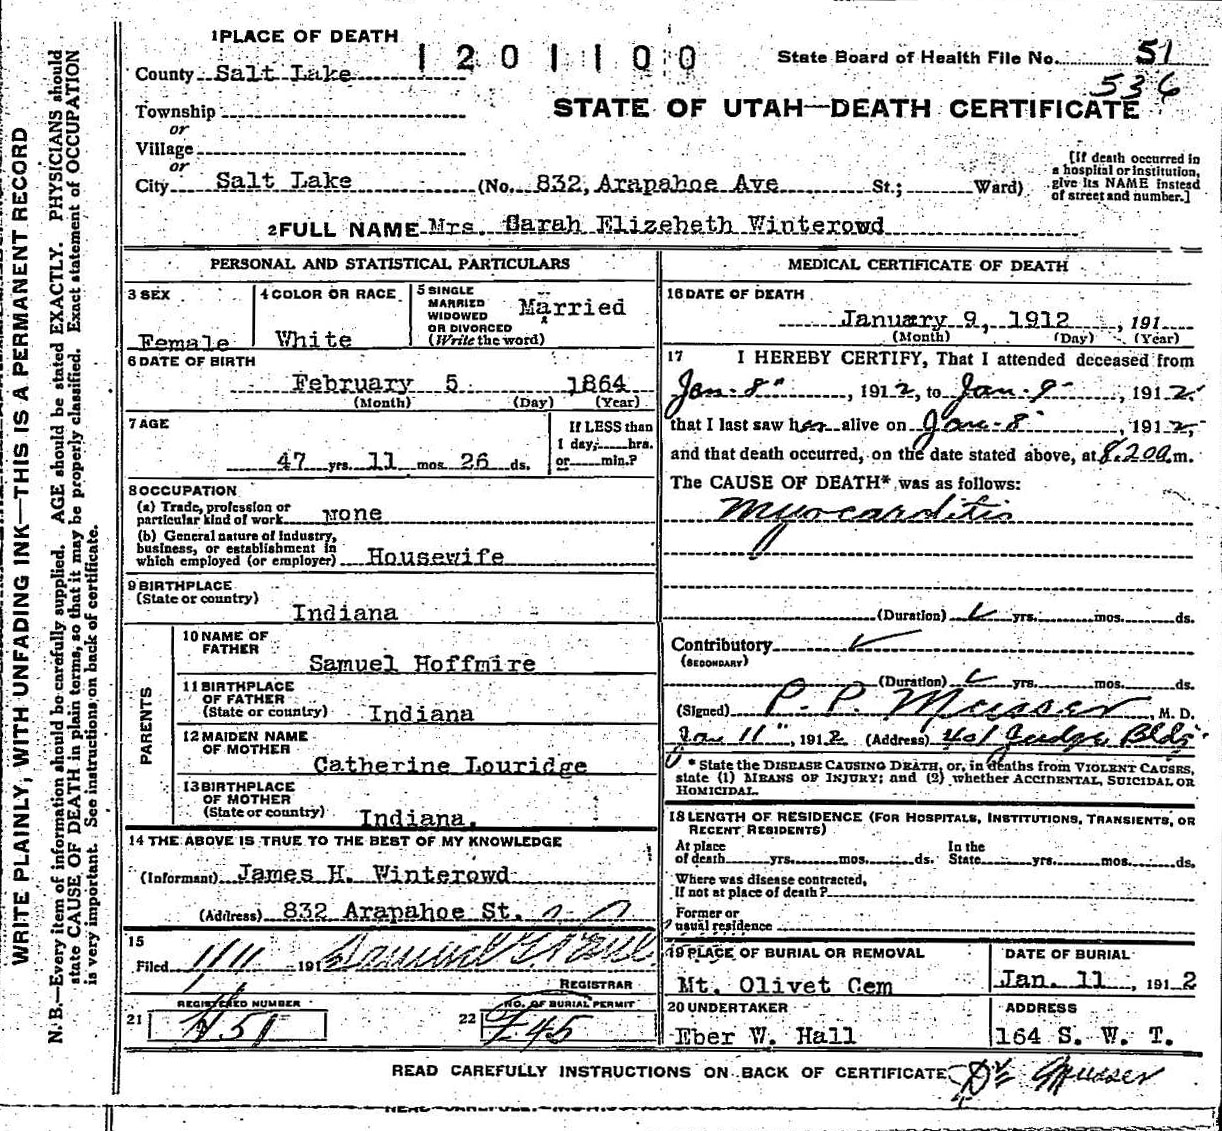 1 PLACE OF DEATH
1201100
State Board of Health File No. 51
536
County Salt Lake
STATE OF UTAH—DEATH CERTIFICATE
Township
or
Village
or
City Salt Lake (No. 832, Arapahoe Ave St.; Ward)
[If death occurred in a hospital or institution, give its NAME instead of street and number.]
2 FULL NAME Mrs. Sarah Elizebeth Winterowd
PERSONAL AND STATISTICAL PARTICULARS
3 SEX
Female
4 COLOR OR RACE
White
5 SINGLE
MARRIED
WIDOWED
OR DIVORCED
(Write the word)
Married
6 DATE OF BIRTH
February 5 1864
(Month) (Day) (Year)
7 AGE
47 yrs. 11 mos. 26 ds.
If LESS than
1 day, hrs.
or min.?
8 OCCUPATION
(a) Trade, profession or
particular kind of work None
(b) General nature of Industry,
business, or establishment in
which employed (or employer) Housewife
9 BIRTHPLACE
(State or country)
Indiana
PARENTS
10 NAME OF
FATHER
Samuel Hoffmire
11 BIRTHPLACE
OF FATHER
(State or country) Indiana
12 MAIDEN NAME
OF MOTHER
Catherine Louridge
13 BIRTHPLACE
OF MOTHER
(State or country) Indiana.
14 THE ABOVE IS TRUE TO THE BEST OF MY KNOWLEDGE
(Informant) James H. Winterowd
(Address) 832 Arapahoe St.
15
Filed 1/11 191
REGISTRAR
REGISTERED NUMBER
21
NO. OF BURIAL PERMIT
22
MEDICAL CERTIFICATE OF DEATH
16 DATE OF DEATH
January 9, 1912, 191
(Month) (Day) (Year)
17 I HEREBY CERTIFY, That I attended deceased from
Jan-8", 1912, to Jan-9", 1912
that I last saw her alive on Jan-8", 1912,
and that death occurred, on the date stated above, at 8.20 a m.
The CAUSE OF DEATH* was as follows:
Myocarditis
(Duration) yrs. mos. ds.
Contributory
(SECONDARY)
(Duration) yrs. mos. ds.
(Signed) P. P. Musser, M. D.
Jan 11", 1912 (Address) 401 Judge Bldg
* State the DISEASE CAUSING DEATH, or, in deaths from VIOLENT CAUSES,
state (1) MEANS OF INJURY; and (2) whether ACCIDENTAL, SUICIDAL OR
HOMICIDAL.
18 LENGTH OF RESIDENCE (FOR HOSPITALS, INSTITUTIONS, TRANSIENTS, OR
RECENT RESIDENTS)
At place
of death yrs. mos. ds.
In the
State yrs. mos. ds.
Where was disease contracted,
If not at place of death?
Former or
usual residence
19 PLACE OF BURIAL OR REMOVAL
Mt. Olivet Cem
DATE OF BURIAL
Jan. 11, 1912
20 UNDERTAKER
Eber W. Hall
ADDRESS
164 S. W. T.
READ CAREFULLY INSTRUCTIONS ON BACK OF CERTIFICATE
Dr Musser
WRITE PLAINLY, WITH UNFADING INK—THIS IS A PERMANENT RECORD
N. B.—Every item of information should be carefully supplied. AGE should be stated EXACTLY. PHYSICIANS should
state CAUSE OF DEATH in plain terms, so that it may be properly classified. Exact statement of OCCUPATION
is very important. See instructions on back of certificate.